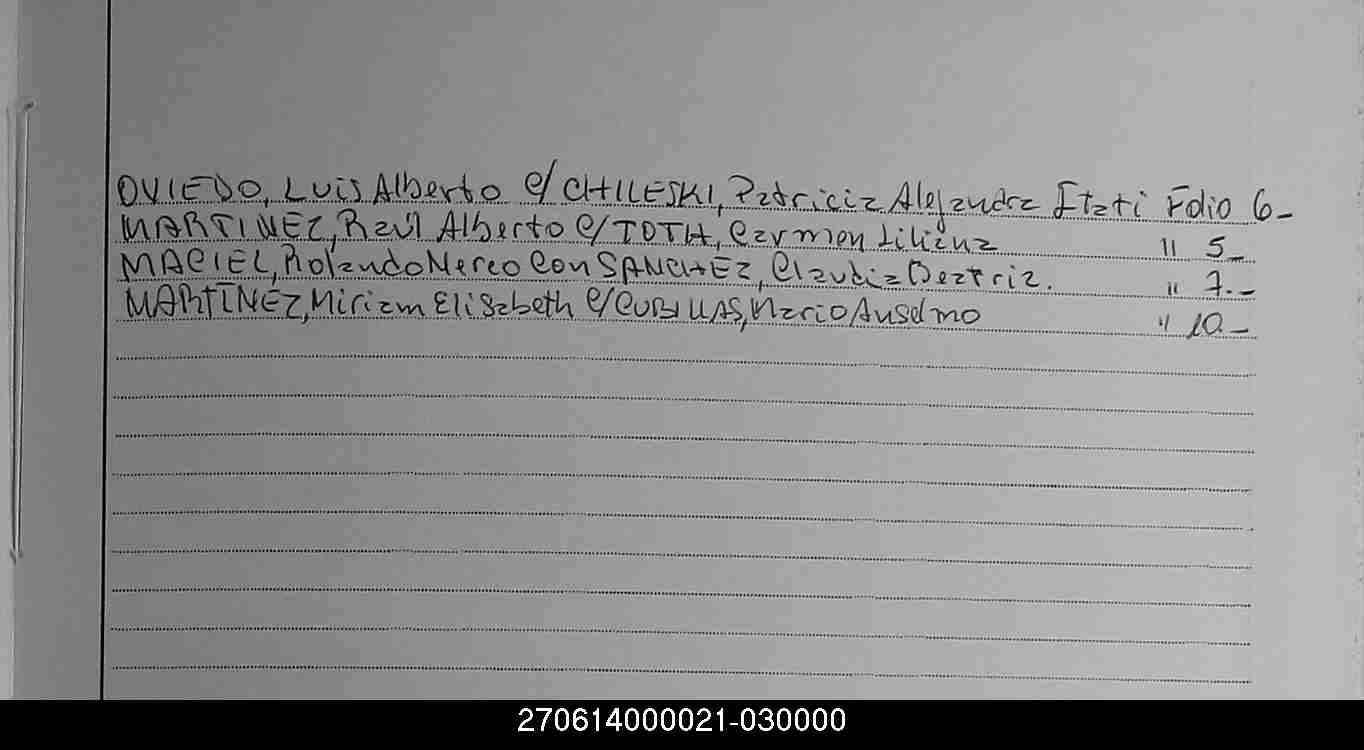 OVIEDO, Luis Alberto c/ CHILESKI, Patricia Alejandra Itati Folio 6-
MARTINEZ, Raúl Alberto c/ TOTH, Carmen Liliana " 5-
MACIEL, Rolando Mereo Con SANCHEZ, Claudia Beatriz. " 7.-
MARTINEZ, Miriam Elisabeth c/ CUBILLAS, Mario Anselmo " 10.-
270614000021-030000